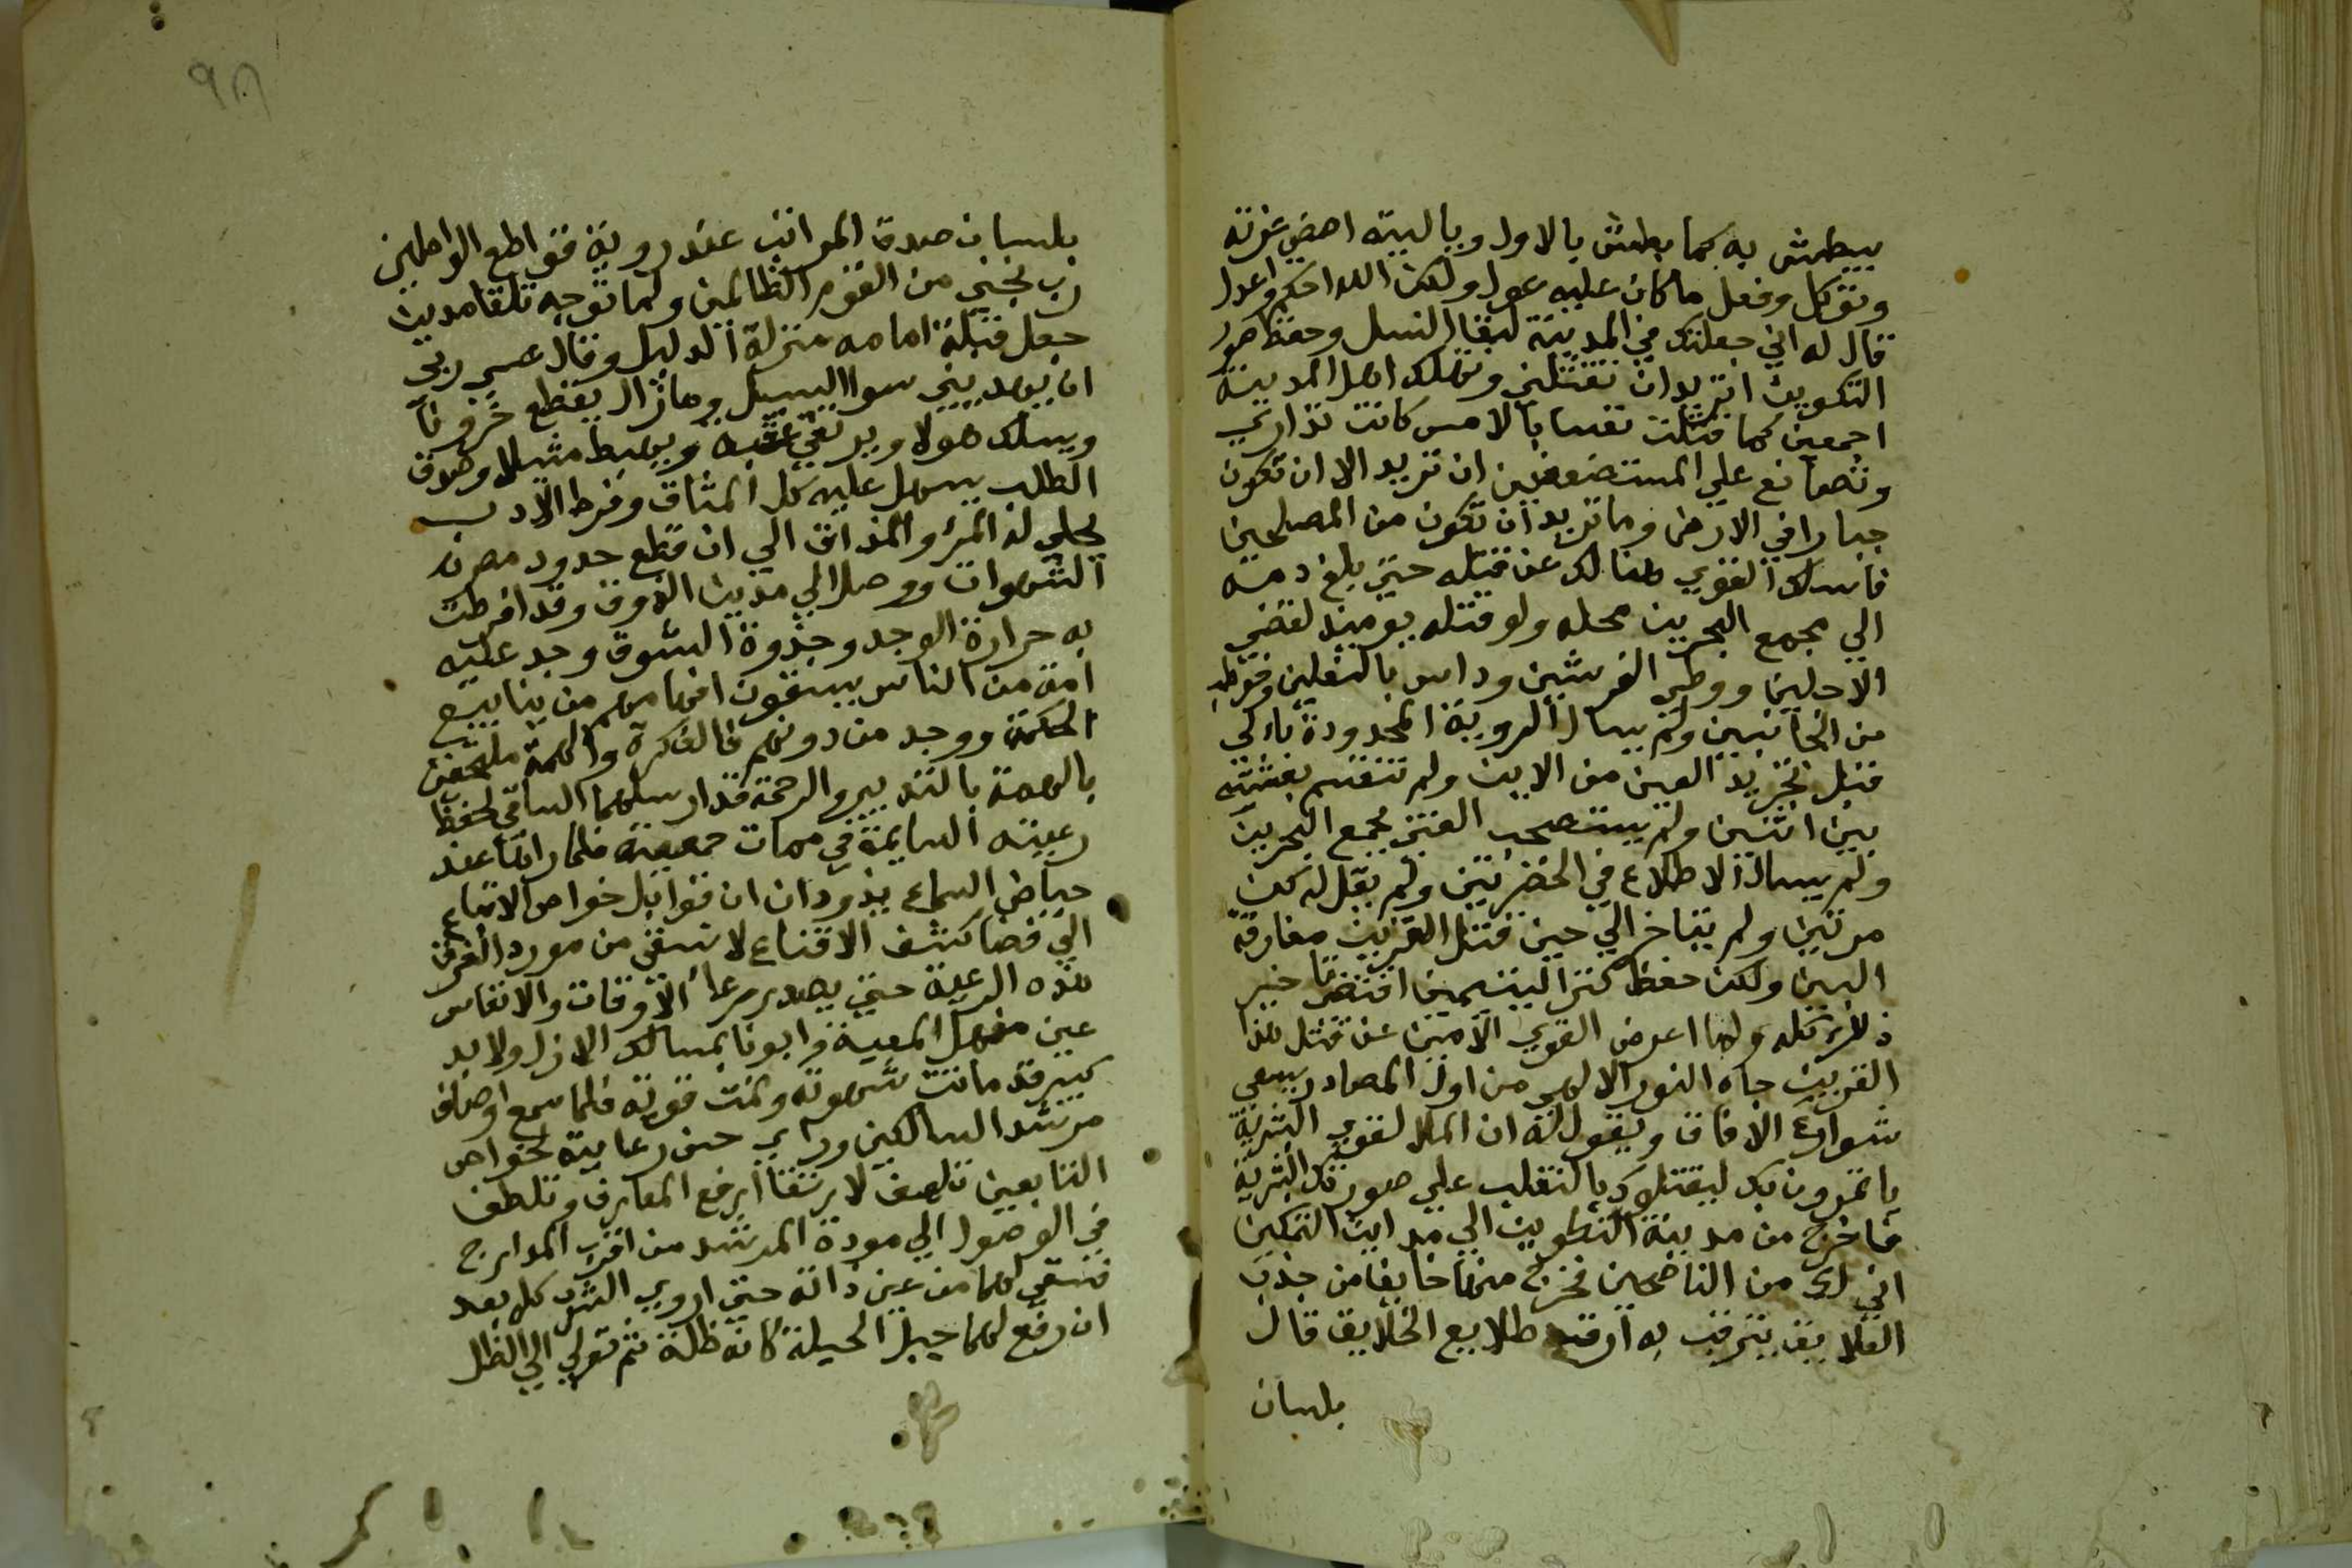 يبطش به كما بطش بالاول وباليته امضي عزته
وتوكل وفعل ما كان عليه عول ولكن الله احكم واعدل
قال له اني جعلتك في المدينة لبقا النسل وحفظ صور
التكوين اتريد ان تقتلني وتهلك اهل المدينة
اجمعين كما قتلت نفسا بالامس كانت تداري
وتصانع علي المستضعفين ان تريد الا ان تكون
جبارا في الارض وما تريد ان تكون من المصلحين
فامسك القوي هنالك عن قتله حتي بلغ دمه
الي مجمع البحرين محله ولو قتله يوميذ لقضي
الاجلين ووطي الفرشين وداس بالنعلين
من الجانبين ولم يسال الروية المحدودة باركي
قبل تجريد العين من الاين ولم تنقسم بغيته
بين اثنين ولم يستصحب الفتي بمجمع البحرين
ولم يسال الاطلاع في الحضرتين ولم يقل له لن
مرتين ولم يتاخر الي حين قتل القرين مفارقة
البين ولكن حفظ كنز اليتيمين اقتضي خبر
ذلك كله ولما اعرض القوي الامين عن قتل هذا
القرين جاه النور الالهي من اول المصادر يسعي
شوارع الافاق ويقول له ان الملا لقوي البشرية
ياتمرون بك ليقتلوك بالتقلب علي صور البشرية
فاخرج من مدينة التطوين الي مداين التمكين
اني لك من الناصحين فخرج منها خايفا من جذب
العلايق يترقب به ارقب طلايع الخلايق قال
بلسان
٩٨
بلسان صدق المراتب عند روية قواطع الواصلين
رب نجني من القوم الظالمين ولما توجه تلقا مدين
جعل قبلة امامه منزلة الدليل وقال عسي ربي
ان يهديني سوا السبيل وما زال يقطع خزونا
ويسلك هولا ويرتقي عقبة ويهبط مثلها وصدق
الطلب يسهل عليه كل المشاق وفرط الادب
يحلي له المر والمذاق الي ان قطع حدود مصر
الشهوات ووصل الي مدين الذوق وقد افرطت
به حرارة الوجد وجذوة الشوق وجد عليه
امة من الناس يسقون افهامهم من ينابيع
الحكمة ووجد من دونهم فالفكرة والهمة
بالعصمة بالتدبير والرحمة قد ارسلهما الساقي لحفظ
رعيته السايمة في مهمات جمعيته فلما راهما عند
حياض السماع يذودان ان قوابل خواص الاتباع
الي فضا كشف الاقناع لا نسقي من مورد العرفان
هذه الرعية حتي يصدر رعا الاوقات والانفاس
عين منهل المعية وابونا بمسالك الازل والابد
كبير قد ماتت شهوته وتمت قوته فلما سمع اوصاف
مرشد السالكين وراي حسن رعايته لخواص
التابعين تلهف لارتقا ارفع المعارف وتلطف
في الوصول الي مودة المرشد من اقرب المدارج
فسقي لهما من عين ذاته حتي اروي الشرب كله بعد
ان رفع لهما جبل الحيلة كانه ظلة ثم تولي الي الظل